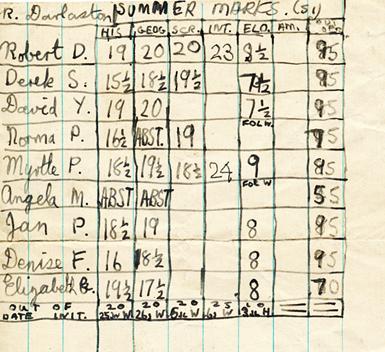 R. Darlaston SUMMER MARKS. (S1)
HIS GEOG SCR. INT. ELO. AM.
Robert D. 19 20 20 23 8½ 95
Derek S. 15½ 18½ 19½ 7½ 95
David Y. 19 20 7½ 95
FOL W.
Norma P. 16½ ABST. 19 95
Myrtle P. 18½ 19½ 18½ 24 9 95
FOL W
Angela M. ABST ABST 55
Jan P. 18½ 19 8 95
Denise F. 16 18½ 8 95
Elizabeth B. 19½ 17½ 8 70
OUT OF 20 20 20 25 10
DATE INIT. W W W W H